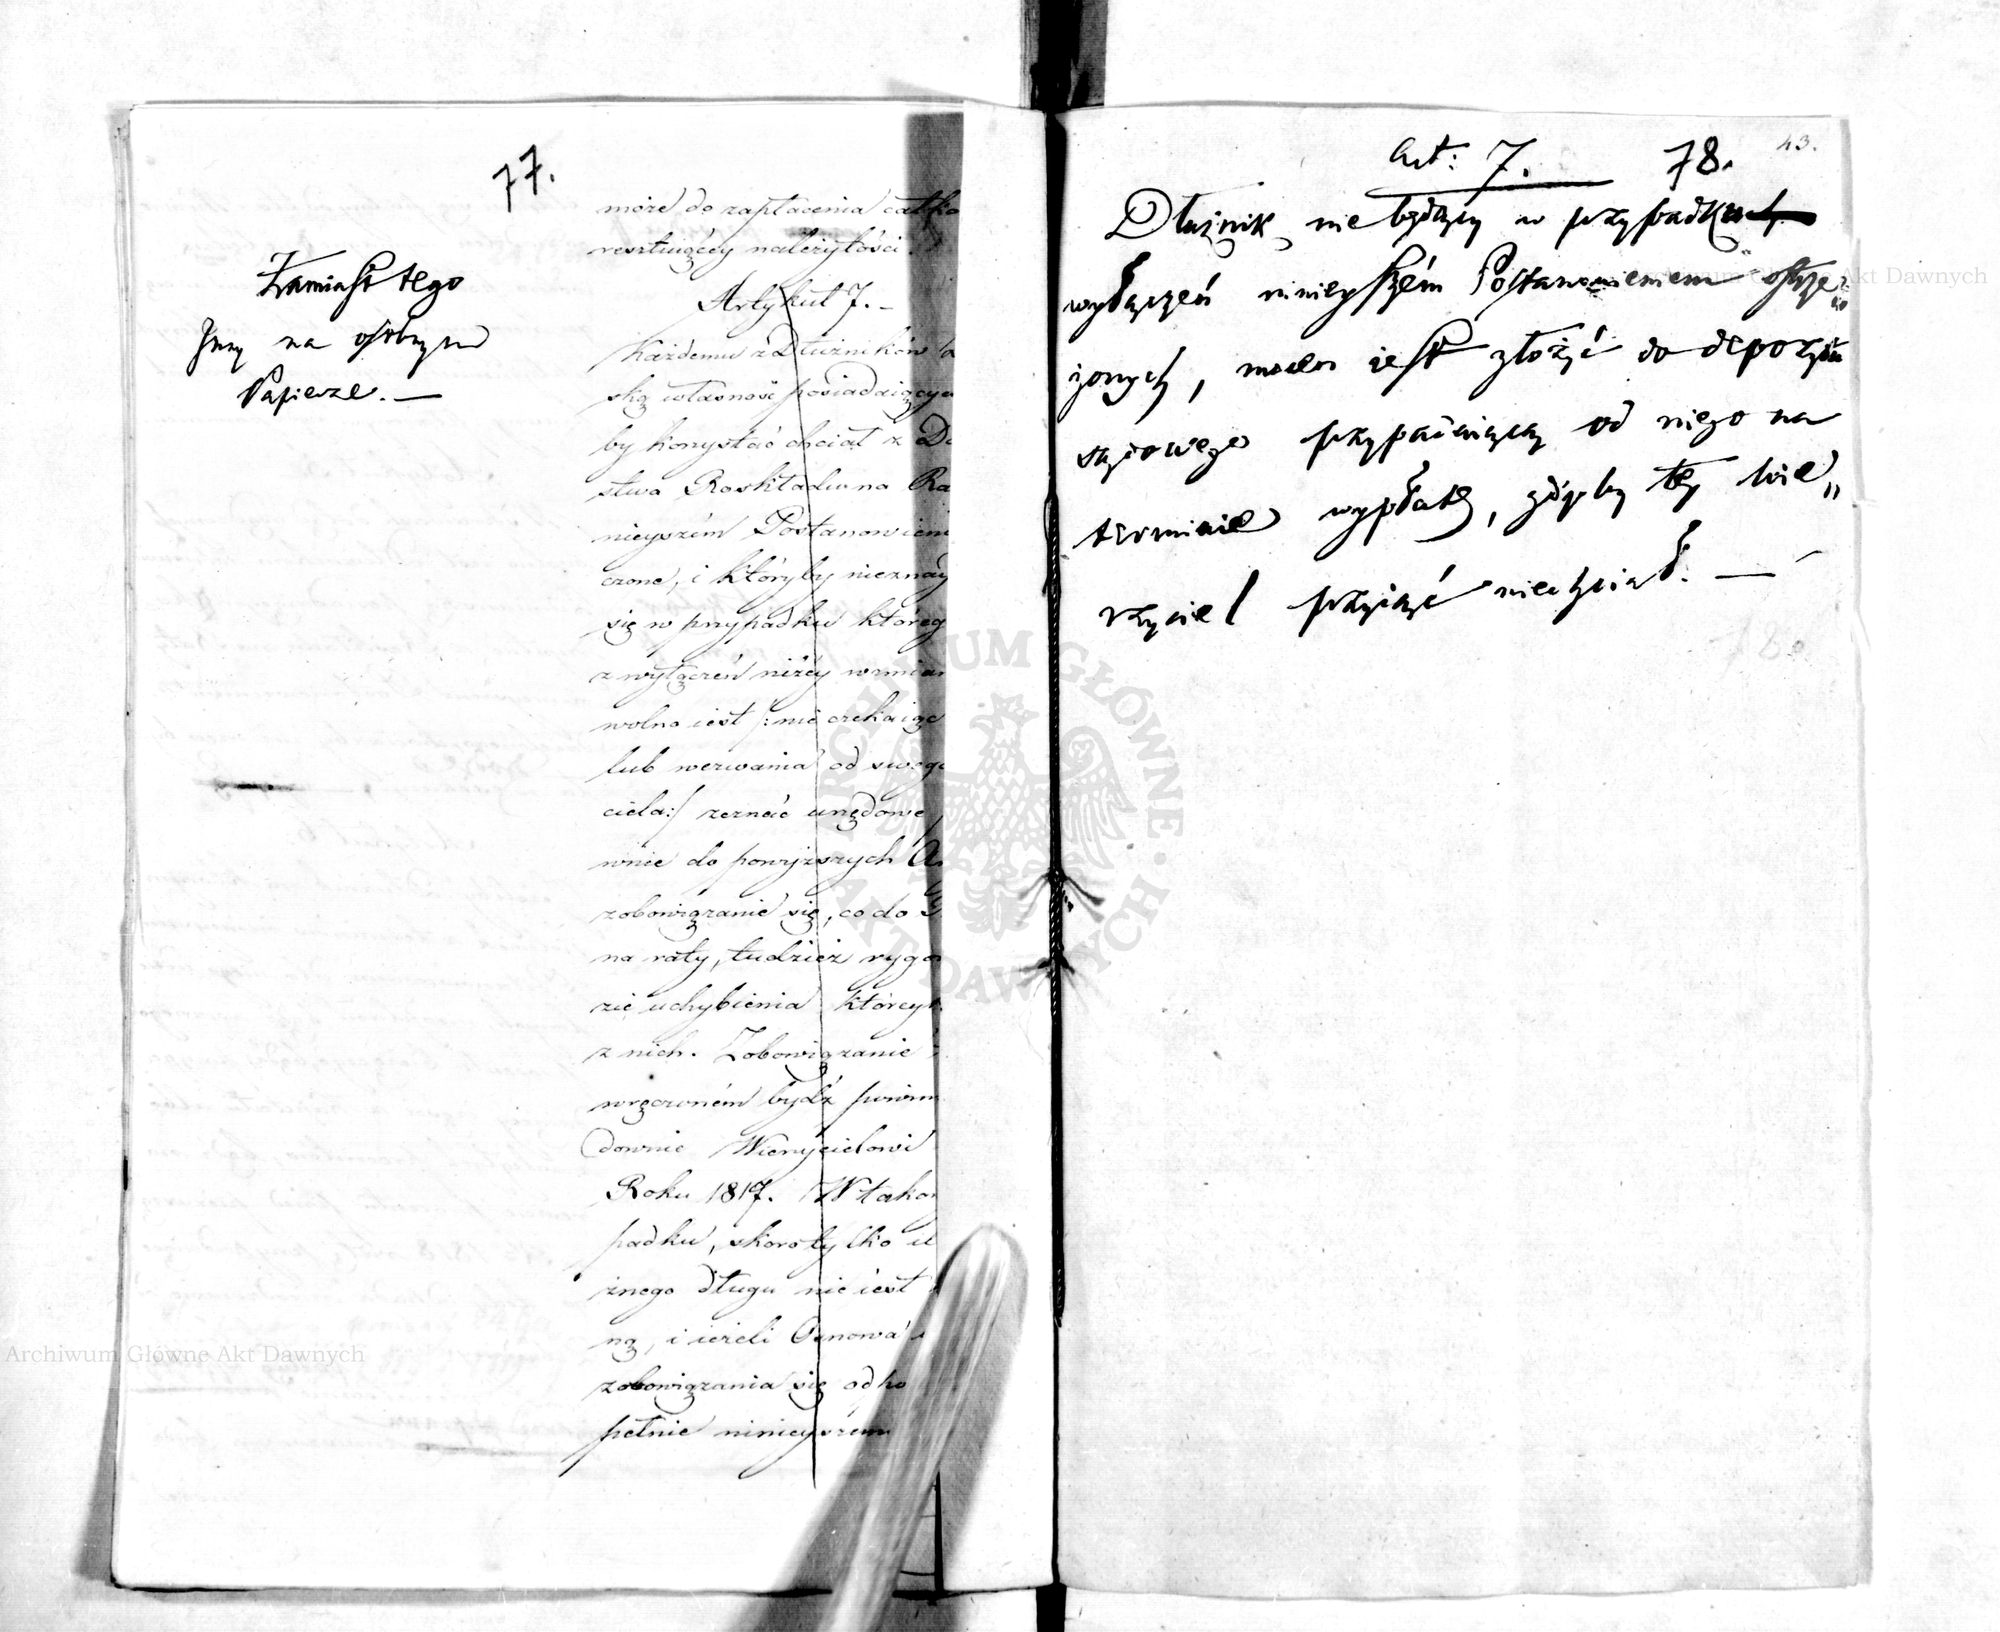 77.
Zamiast tego
Inny na osobnym
Papierze. —
może do zapłacenia całko
resztuiącéy należytości.
Artykuł 7. –
Każdemu z Dłużników
ską własność posiadaiący
by korzystać chciał z Do
stwa Roskładu na Ra
nieyszém Postanowieni
czone, i któryby nieznay
się w przypadku któreg
z wyłączeń niżéy wzmian
wolno iest /:nie czekaiąc
lub wezwania od swego
ciela:/ zeznać urzędowe
wnie do powyższych A
zobowiązanie się, co do
na raty, tudzież rygor
zie uchybienia któréy
z nich. Zobowiązanie
wręczoném bydź powin
downie Wierzycielowi
Roku 1817. W tako
padku, skoro tylko il
żnego długu nie iest
ną, i ieżeli Osnowa
zobowiązania się odpo
pełnie ninieyszém
43.
Art: 7. 78.
Dłużnik nie będący w przypadku
wyłączeń ninieyszém Postanowieniem ostrze„
żonych, mocen iest złożyć do depozytu
sądowego przypadaiącą od niego na
terminie wypłatę, gdyby téy wie„
rzyciel przyiąć niechciał. —
Archiwum Główne Akt Dawnych
ARCHIWUM GŁÓWNE AKT DAWNYCH
Archiwum Główne Akt Dawnych